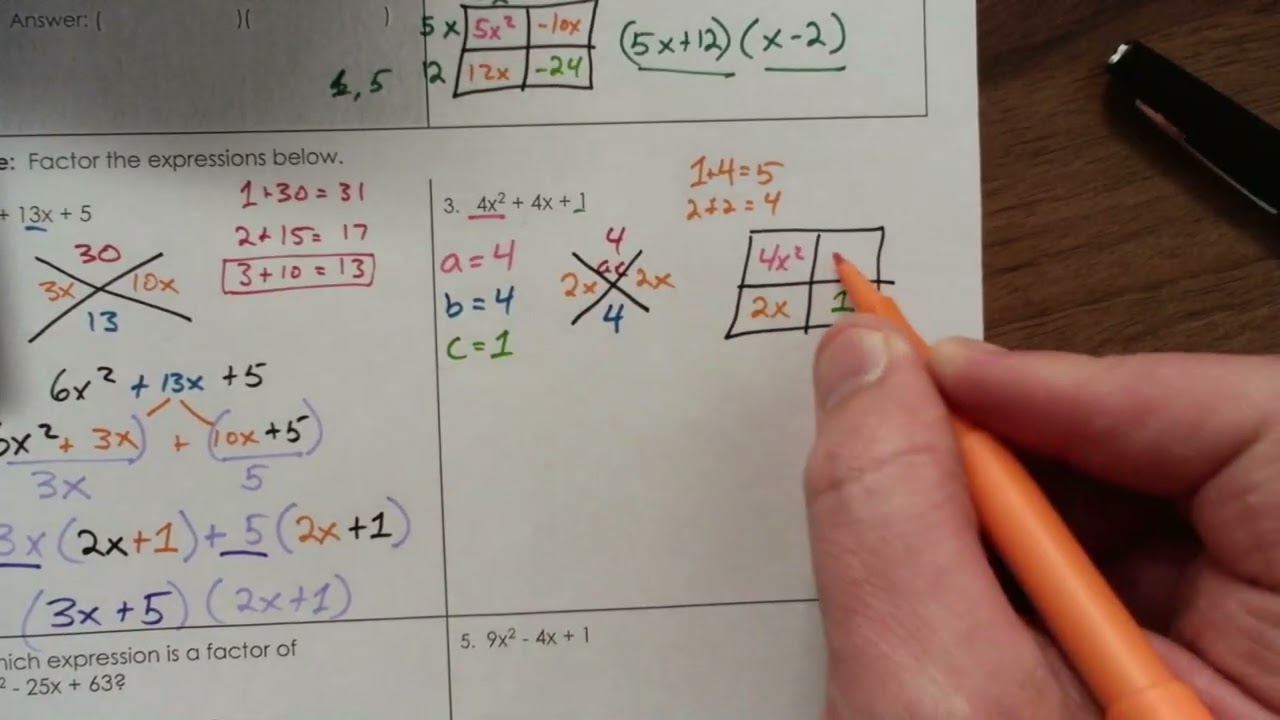 Answer: ( )( )
5x 5x² -10x
12x -24
(5x+12)(x-2)
, 5
Factor the expressions below.
+ 13x + 5
1+30 = 31
2+15 = 17
3+10 = 13
30
3x 10x
13
6x² + 13x + 5
x² + 3x) + (10x+5)
3x 5
3x(2x+1)+5(2x+1)
(3x+5)(2x+1)
3. 4x² + 4x + 1
a=4
b=4
c=1
4
ac
2x 2x
4
1+4=5
2+2=4
4x²
2x 1
hich expression is a factor of
² - 25x + 63?
5. 9x² - 4x + 1